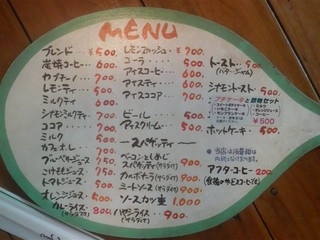 MENU
ブレンド・・¥500.
炭焼コーヒー・・600.
カプチーノ・・・700.
レモンティ・・・500.
ミルクティ・・・600.
シナモンミルクティ・700.
ココア・・・700.
ミルク・・・500.
カフェオレ・・700.
ブルーベリージュース・750.
こけももジュース・750.
トマトジュース・500.
オレンジジュース・500.
カレーライス・800.
(サラダツキ)
レモンスカッシュ・¥700.
コーラ・・・500.
アイスコーヒー・・600.
アイスティ・・・600.
アイスココア・・700.
ビール・・・500.
アイスクリーム・・500.
―スパゲッティ―
ベーコンとしめじ
スパゲッティ(サラダツキ)900.
カルボナラ(サラダツキ)900.
ミートソース(サラダツキ)900.
ソースカツ重 1,000
ハヤシライス・・900.
(サラダツキ)
トースト・・500.
(バター・ジャム)
シナモントースト 500.
プチケーキと飲物セット
¥500
ホットケーキ 500.
アフターコーヒー 200